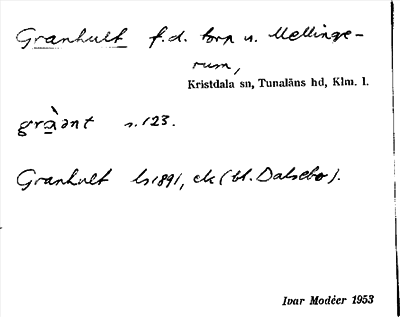 Granhult f.d. torp u. Mellinge-
rum,
Kristdala sn, Tunaläns hd, Klm. l.
gràǝnt s.123.
Granhult ls 1891, ek (bl. Dalsebo).
Ivar Modéer 1953